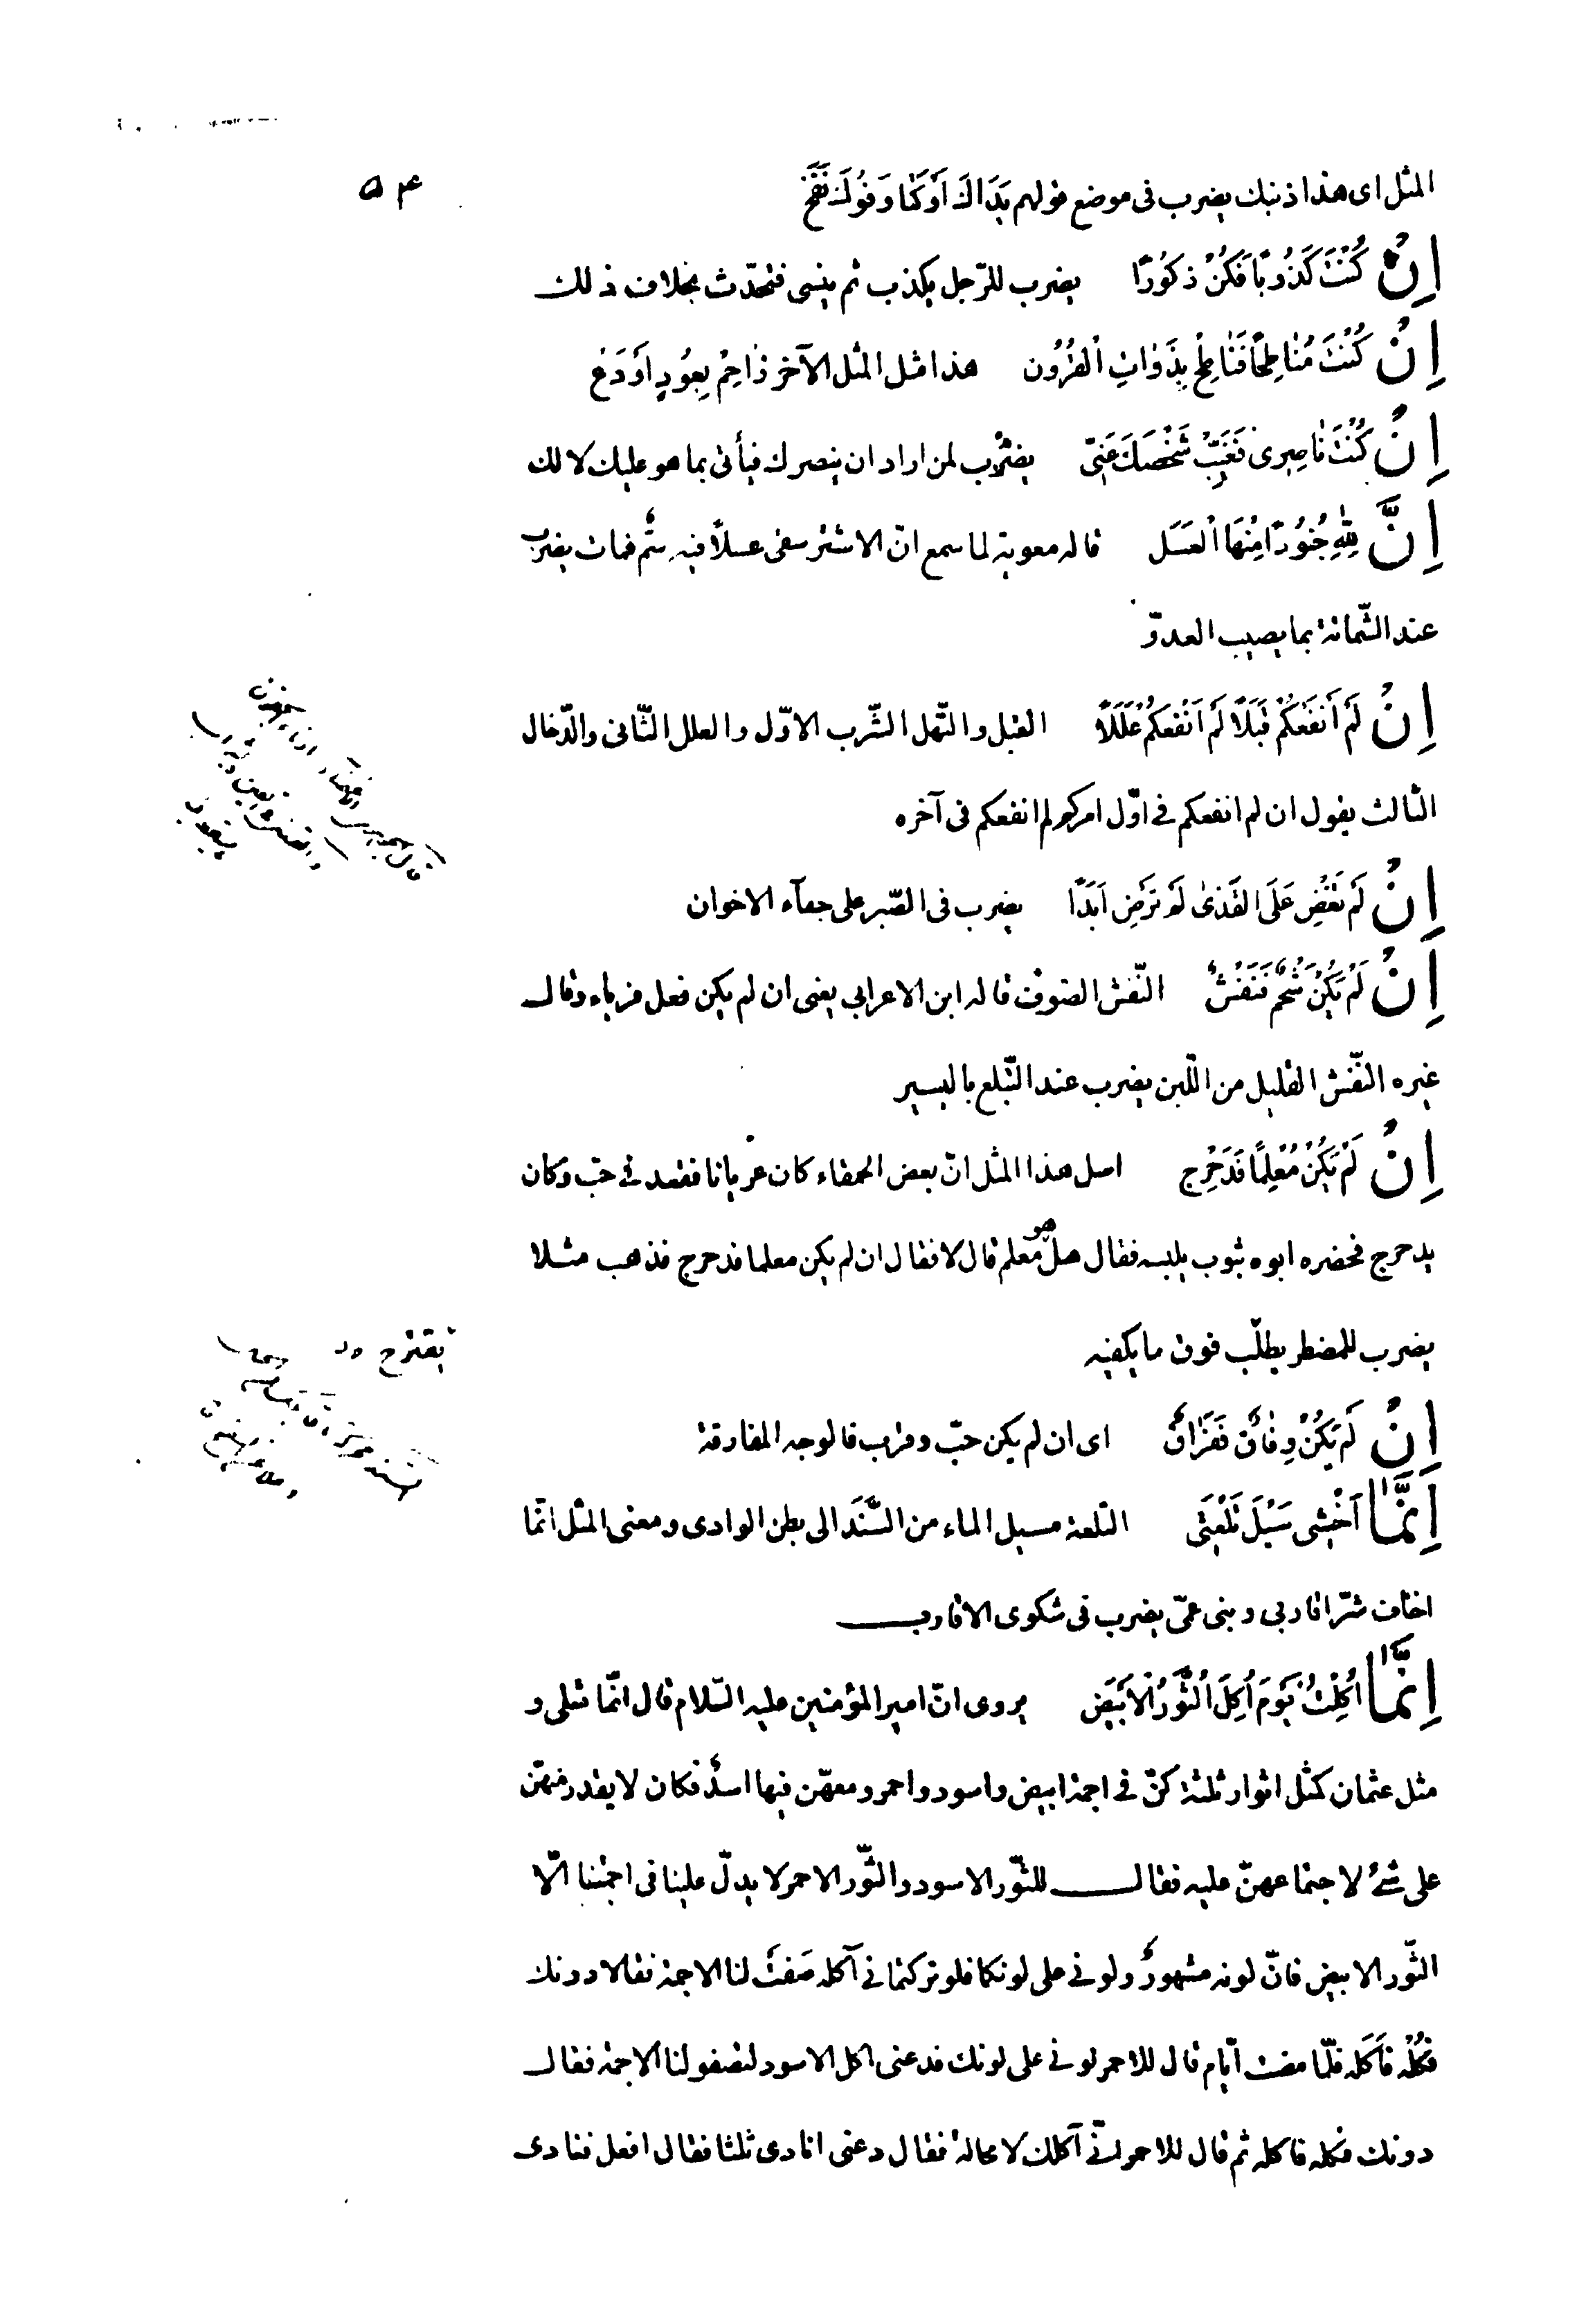 ۵۴
المثل اى هذا ذنبك يضرب فى موضع قولهم يَدَاكَ اَوْكَتَا وَفُوكَ نَفَخَ
اِنْ كُنْتَ كَذُوبًا فَكُنْ ذَكُورًا يضرب للرّجل يكذب ثم ينسى فتحدّث بخلاف ذلك
اِنْ كُنْتَ مُنَاطِحًا فَنَاطِحْ بِذَوَاتِ الْقُرُون هذا مثل المثل الآخر زَاحِمْ بِعُودٍ اَوْ دَعْ
اِنْ كُنْتَ نَاصِرِى فَغَيِّبْ شَخْصَكَ عَنِّى يضرب لمن اراد ان ينصرك فيأتى بما هو عليك لا لك
اِنَّ لِلّٰهِ جُنُودًا مِنْهَا الْعَسَل قاله معوية لما سمع انّ الاشتر سقى عسلاً فيه سَمٌّ فمات يضرب
عند الشّماتة بما يصيب العدوّ
اِنْ لَمْ اَنْفَعْكُمْ قَبَلًا لَمْ اَنْفَعْكُمْ عَلَلًا القبل والنّهل الشّرب الاوّل والعلل الثّانى والدّخال
الثالث يقول ان لم انفعكم فى اوّل امركم لم انفعكم فى آخره
اِنْ لَمْ تُغْضِ عَلَى القَذىٰ لَمْ تَرْضَ اَبَدًا يضرب فى الصّبر على جفآء الاخوان
اِنْ لَمْ يَكُنْ شَحْمٌ فَنَفَشٌ النّفش الصّوف قاله ابن الاعرابى يعنى ان لم يكن فعل فرياء وقال
غيره النّفش القليل من اللّبن يضرب عند التّبلع باليسير
اِنْ لَمْ يَكُنْ مُعْلَمًا فَدَحْرِج اصل هذا المثل انّ بعض الحمقاء كان عريانا فقعد فى حبّ وكان
يدحرج فحضره ابوه بثوب يلبسه فقال هل هو معلم قال لا فقال ان لم يكن معلما فدحرج فذهب مثلا
يضرب للمضطر يطلب فوق ما يكفيه
يقترح
اِنْ لَمْ يَكُنْ وِفَاقٌ فَفِرَاقٌ اى ان لم يكن حبّ وقرب فالوجه المفارقة
اِنَّمَا اَخْشى سَيْلَ تَلْعَتِى التلعة مسيل الماء من السَّنَد الى بطن الوادى ومعنى المثل انّما
اخاف شرّ اقاربى وبنى عمّى يضرب فى شكوى الاقارب
اِنَّمَا اُكِلْتُ يَوْمَ اُكِلَ الثَّوْرُ الْاَبْيَض يروى انّ امير المؤمنين عليه السّلام قال انّما مثلى و
مثل عثمان كمثل اثوار ثلثة كنّ فى اجمة ابيض واسود واحمر ومعهّن فيها اسدٌ فكان لا يقدر منهّن
على شئ لاجتماعهنّ عليه فقال للثّور الاسود والثّور الاحمر لا يدلّ علينا فى اجمتنا الّا
الثّور الابيض فانّ لونه مشهورٌ ولونى على لونكما فلو تركتمانى آكله صَفَتْ لنا الاجمة فقالا دونك
فكُلْه فَاَكَله فلمّا مضت ايّام قال للاحمر لونى على لونك فدعنى اكل الاسود لتصفو لنا الاجمة فقال
دونك فكله فاكله ثم قال للاحمر انّى آكلك لا محالة فقال دعنى انادى ثلثا فقال افعل فنادى